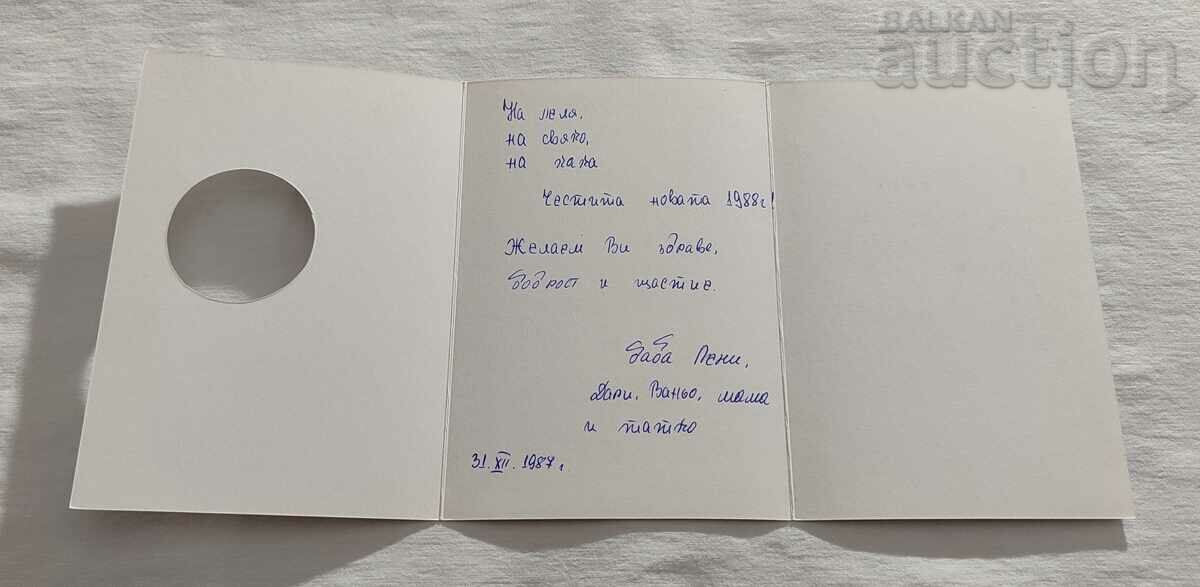 BALKAN
auction
На леля,
на свако,
на кака
Честита новата 1988г!
Желаем Ви здраве,
бодрост и щастие.
баба Пени,
Дари, Ваньо, мама
и татко
31.XII.1987г